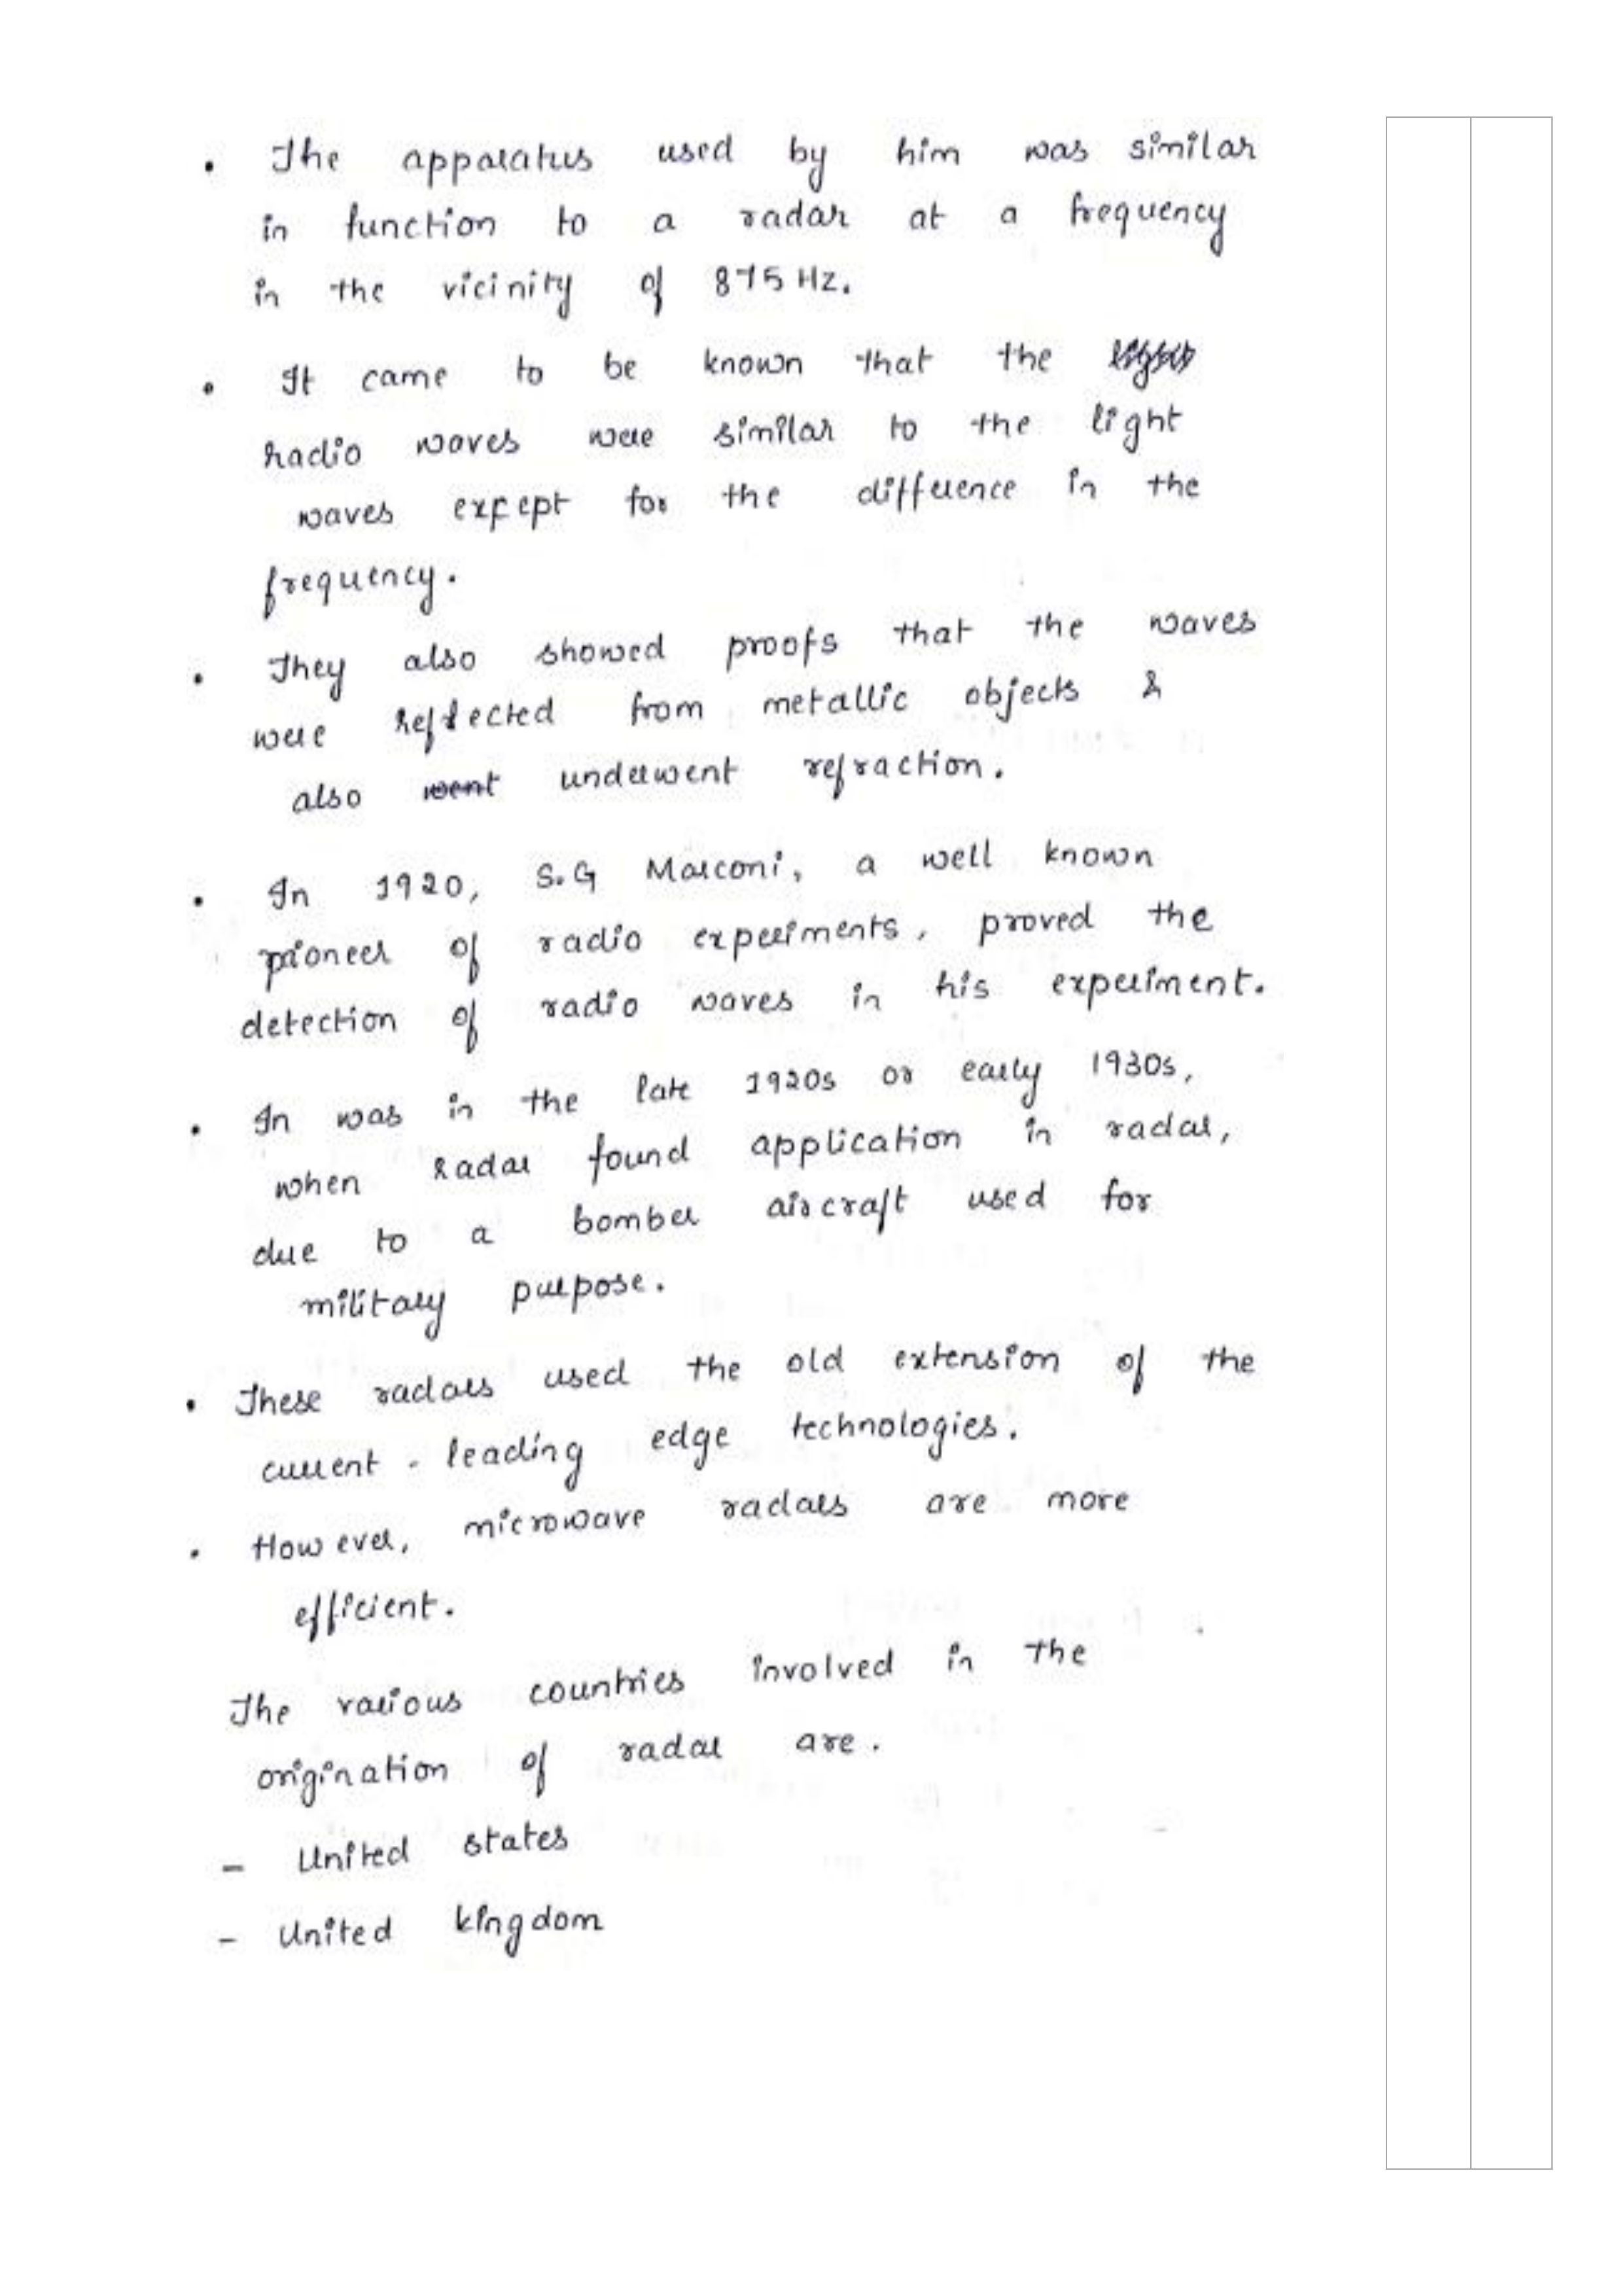 • The apparatus used by him was similar
in function to a radar at a frequency
in the vicinity of 875 Hz.
• It came to be known that the
radio waves were similar to the light
waves except for the difference in the
frequency.
• They also showed proofs that the waves
were reflected from metallic objects &
also went underwent refraction.
• In 1920, S.G Marconi, a well known
pioneer of radio experiments, proved the
detection of radio waves in his experiment.
• In was in the late 1920s or early 1930s,
when radar found application in radar,
due to a bomber aircraft used for
military purpose.
• These radars used the old extension of the
current - leading edge technologies.
• However, microwave radars are more
efficient.
The various countries involved in the
origination of radar are.
- United states
- United kingdom